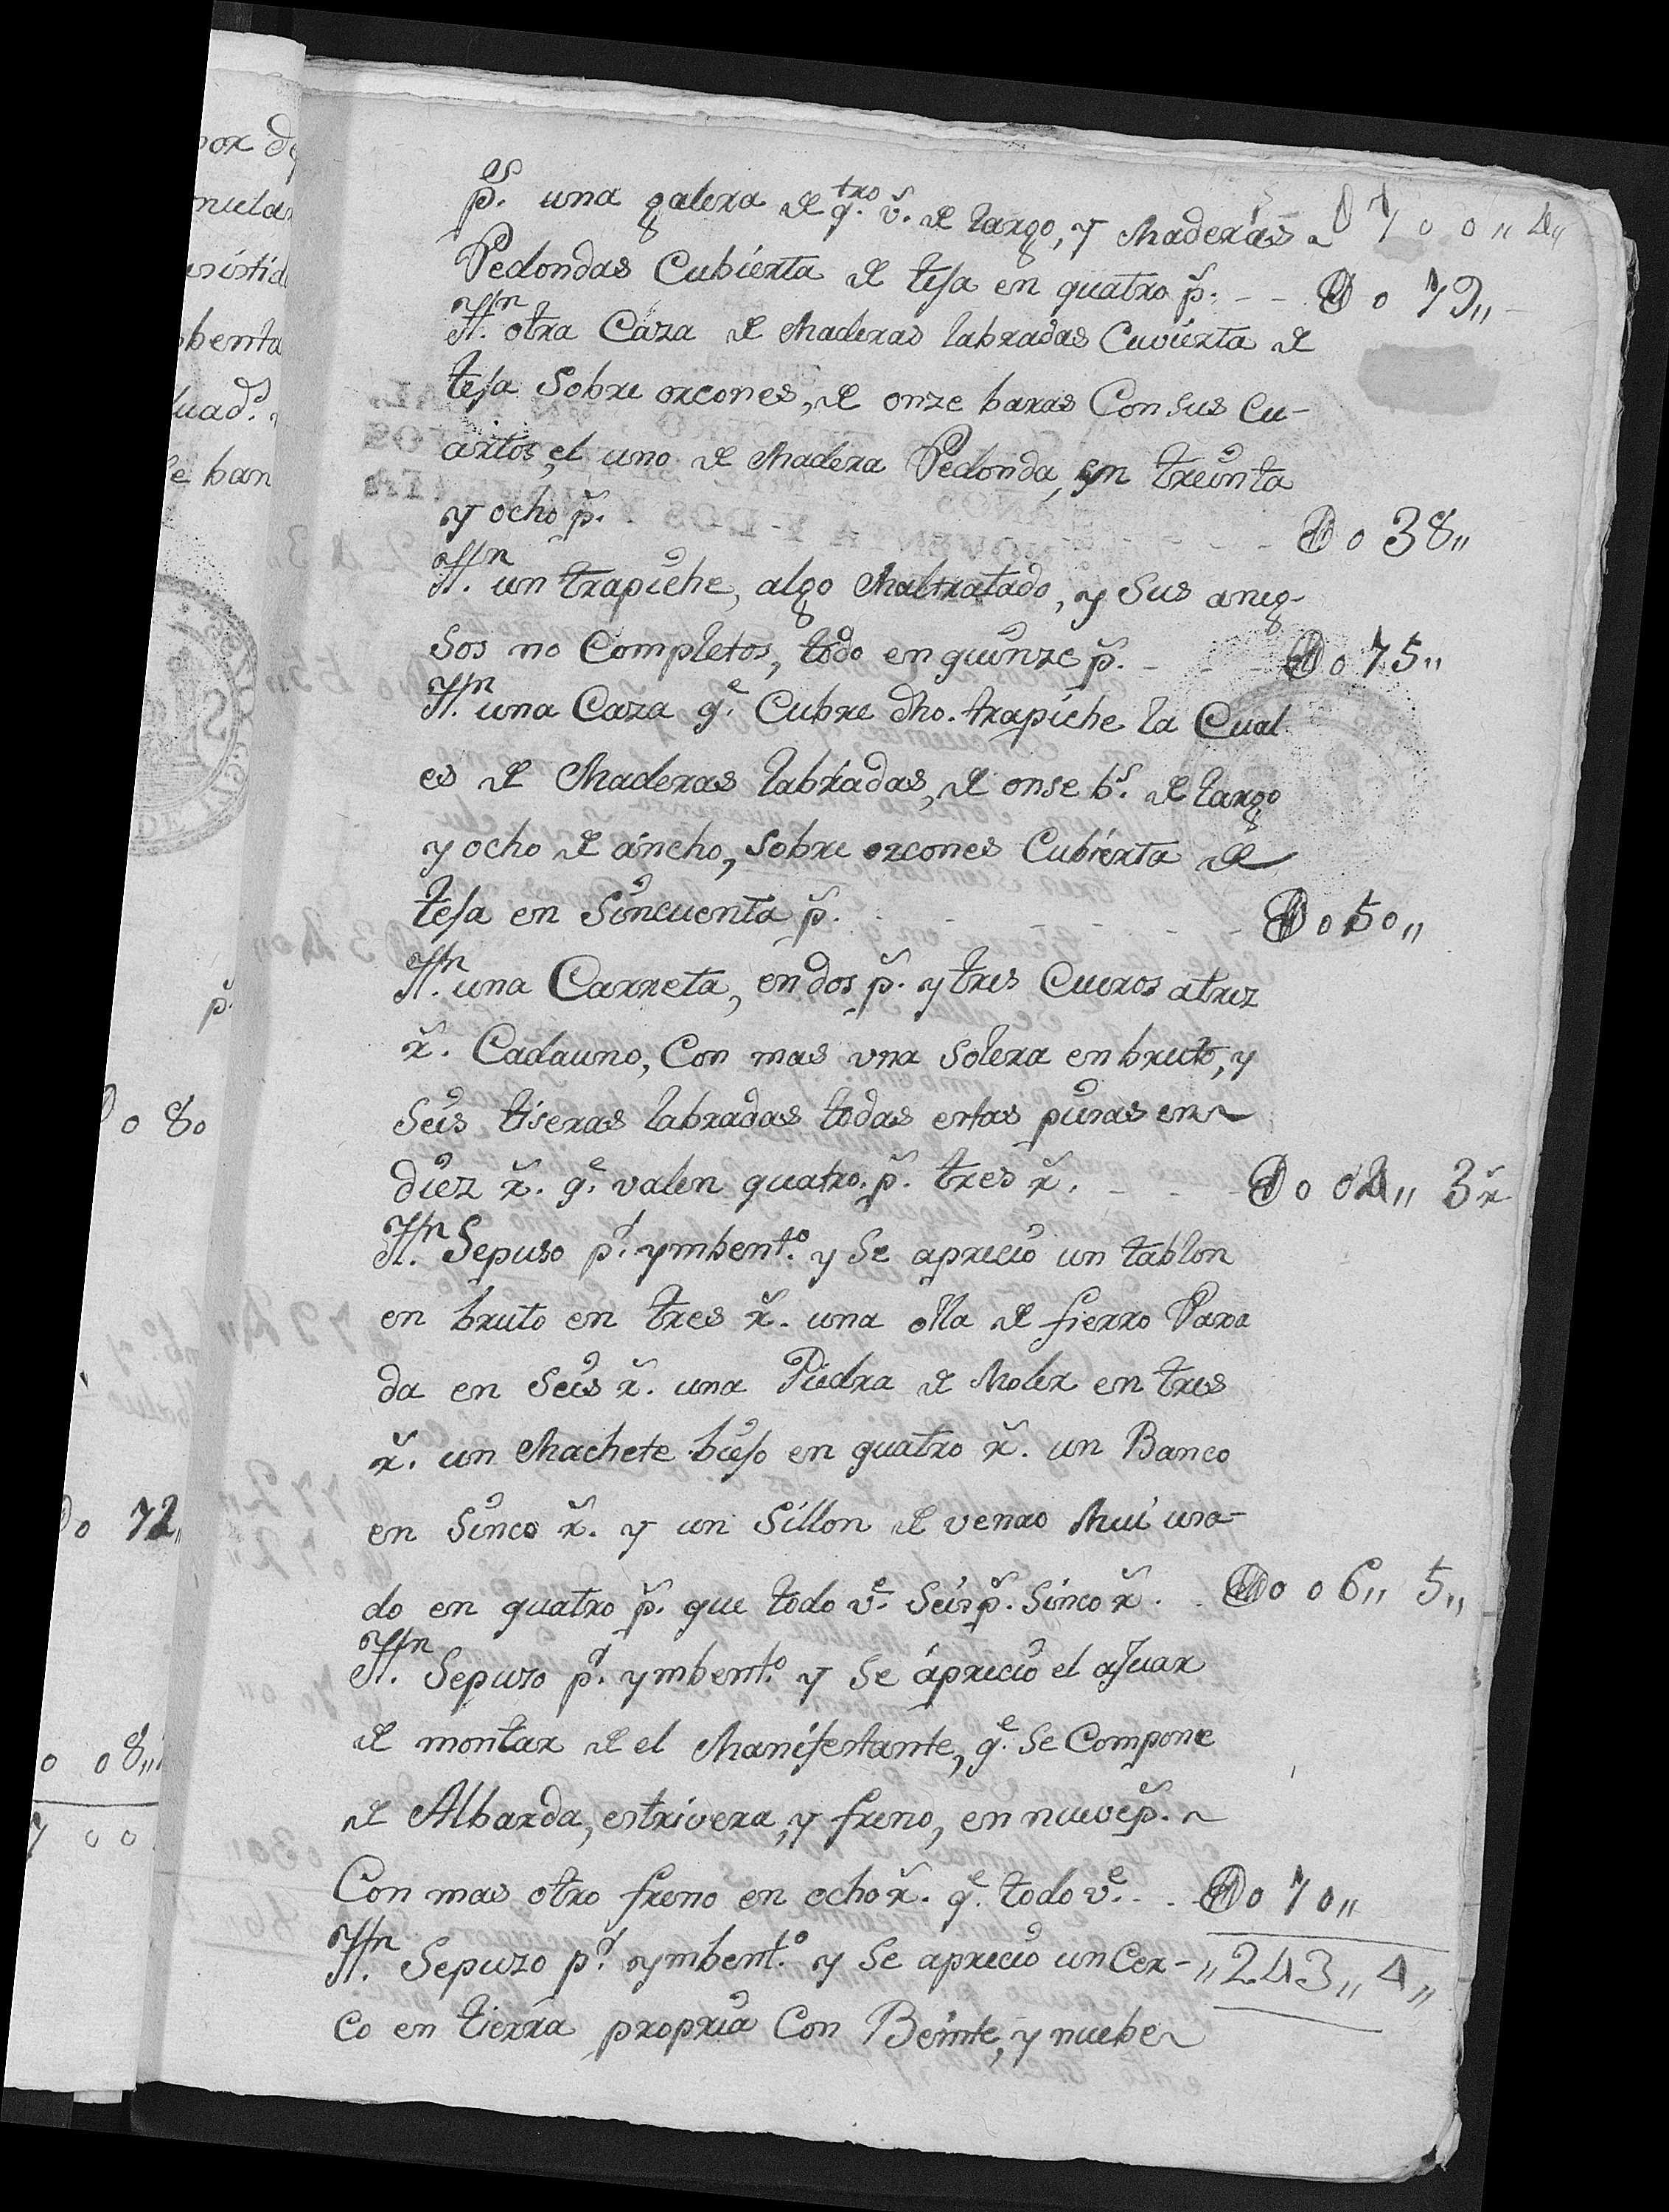 por d
mula
asistid
benta
luad.º
e ban
p.
o 80
o 12,,
o 08,,
1 00
p.os una galera de q.tro v.s de largo, y Maderas 100,,4,,
Redondas Cubierta de teja en quatro p.s - - 0 19,,
Ytn. otra Caza de Maderas labradas Cuvierta de
teja Sobre orcones, de onze baras Con sus Cu-
artos, el uno de Madera Redonda, en treinta
y ocho p.s - - - 0 38,,
Ytn. un trapiche, algo Maltratado, y Sus aneg-
sos no Completos, todo en quinze p.s - - 0 15,,
Ytn. una Caza q.e Cubre dho. trapiche la Cual
es de Maderas labradas, de onse b.s de largo
y ocho de ancho, sobre orcones Cubierta de
teja en Sincuenta p.s - - - 0 50,,
Ytn. una Carreta, en dos p.s y tres Cueros atrez
r.s Cadauno, Con mas una Solera en bruto, y
Seis tiseras labradas todas estas puras en
diez r.s q.e valen quatro p.s tres r.s - - - 0 04,, 3 r
Ytn. Sepuso p.r ymbent.o y Se aprecio un tablon
en bruto en tres r.s una olla de fierro Para
da en Seis r.s una Piedra de Moler en tres
r.s un Machete biejo en quatro r.s un Banco
en Sinco r.s y un Sillon de venao Mui usa-
do en quatro p.s que todo v.e Seis p.s Sinco r.s 0 06,, 5,,
Ytn. Sepuzo p.r ymbent.o y Se aprecio el aJuar
de montar de el Manifestante, q.e Se Compone
de Albarda, estrivera, y freno, en nueve p.s
Con mas otro freno en ocho r.s q.e todo v.e - - 0 10,,
Ytn. Sepuzo p.r ymbent.o y Se aprecio un Cer- ,,243,,4,,
co en tierra propria Con Beinte, y nuebe